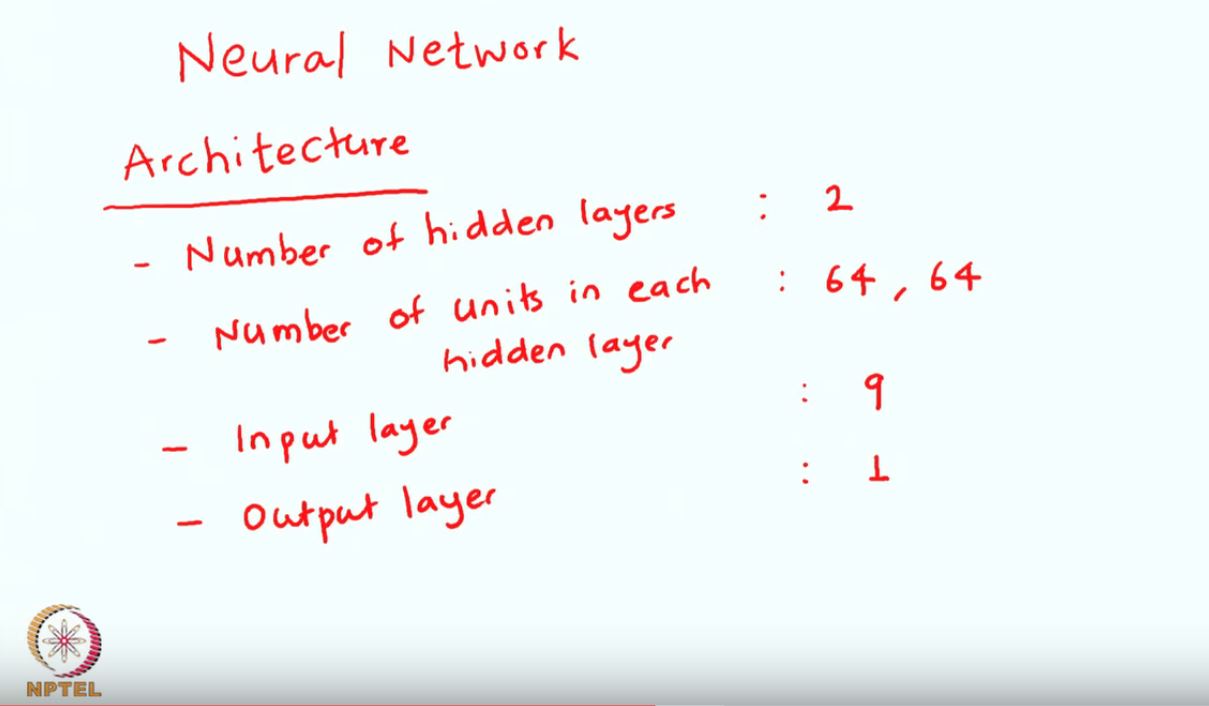 Neural Network
Architecture
- Number of hidden layers : 2
- Number of units in each : 64, 64
hidden layer
- Input layer : 9
- Output layer : 1
NPTEL